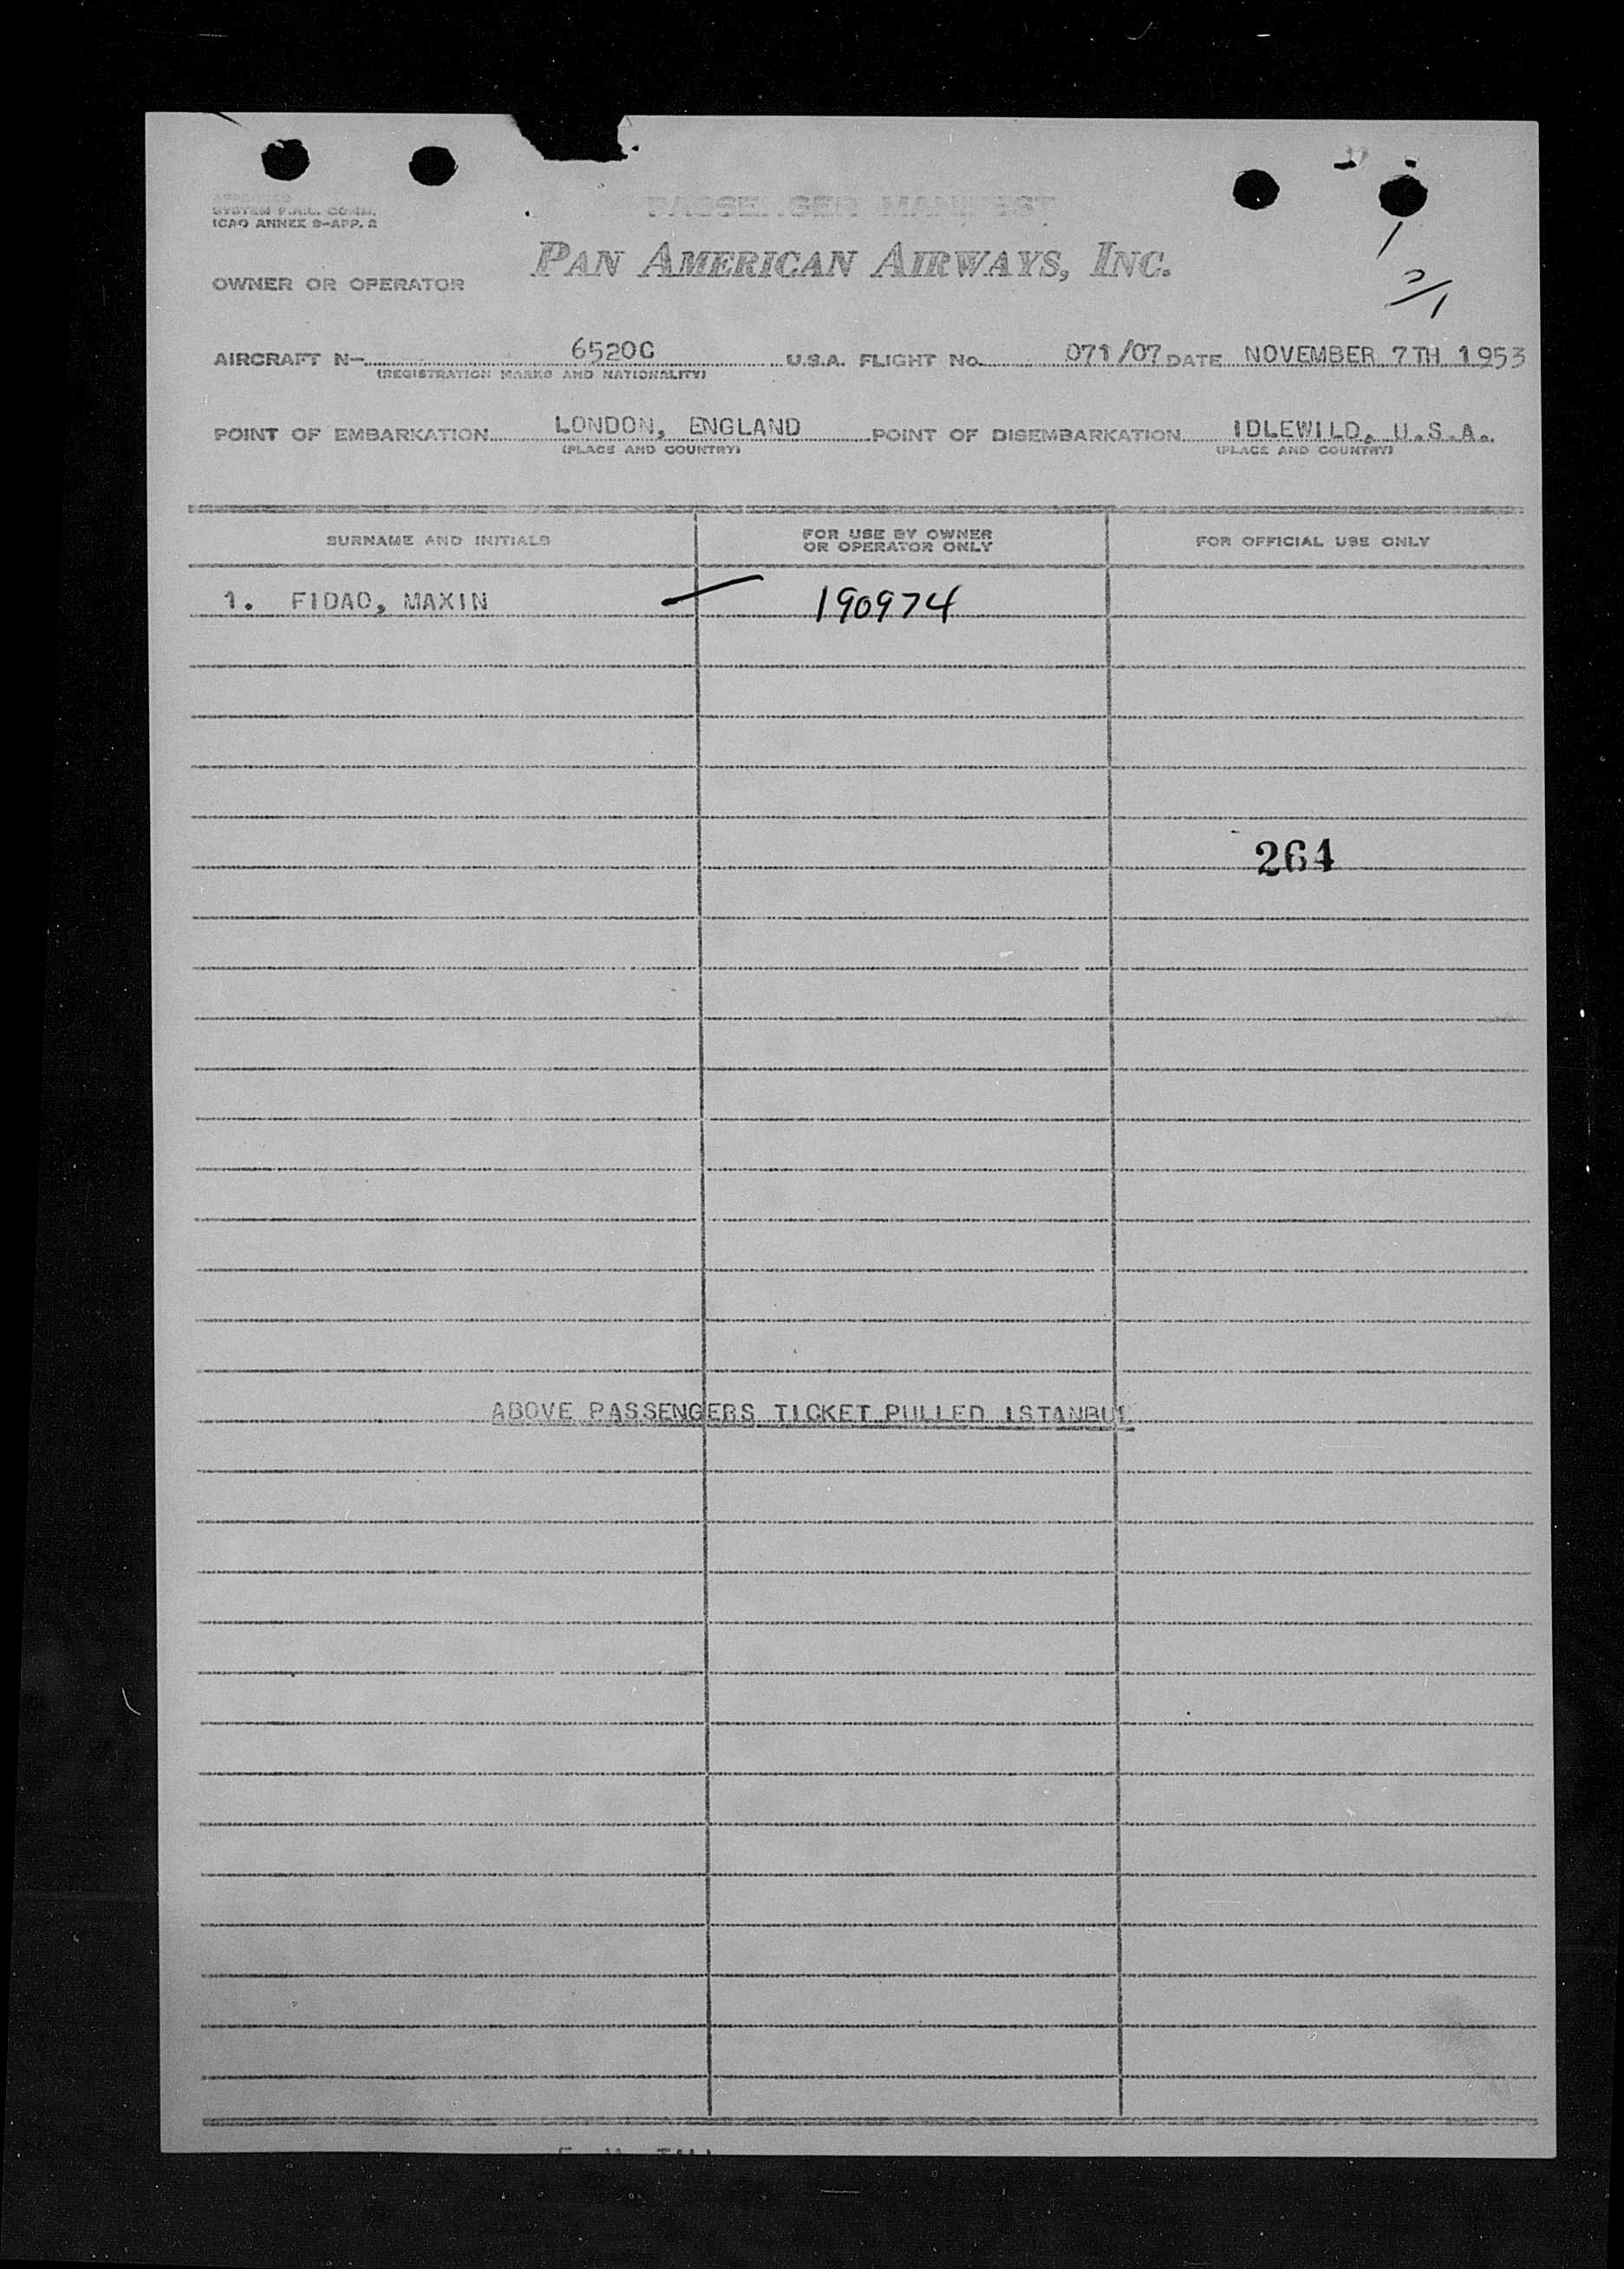 SYSTEM P.A.L. COMM.
ICAO ANNEX 9-APP. 2
PASSENGER MANIFEST
PAN AMERICAN AIRWAYS, INC.
OWNER OR OPERATOR
1
2/1
AIRCRAFT N- 6520C U.S.A. FLIGHT No. 071/07 DATE NOVEMBER 7TH 1953
(REGISTRATION MARKS AND NATIONALITY)
POINT OF EMBARKATION LONDON, ENGLAND POINT OF DISEMBARKATION IDLEWILD, U.S.A.
(PLACE AND COUNTRY) (PLACE AND COUNTRY)
SURNAME AND INITIALS FOR USE BY OWNER OR OPERATOR ONLY FOR OFFICIAL USE ONLY
1. FIDAO, MAXIN 190974
264
ABOVE PASSENGERS TICKET PULLED ISTANBUL